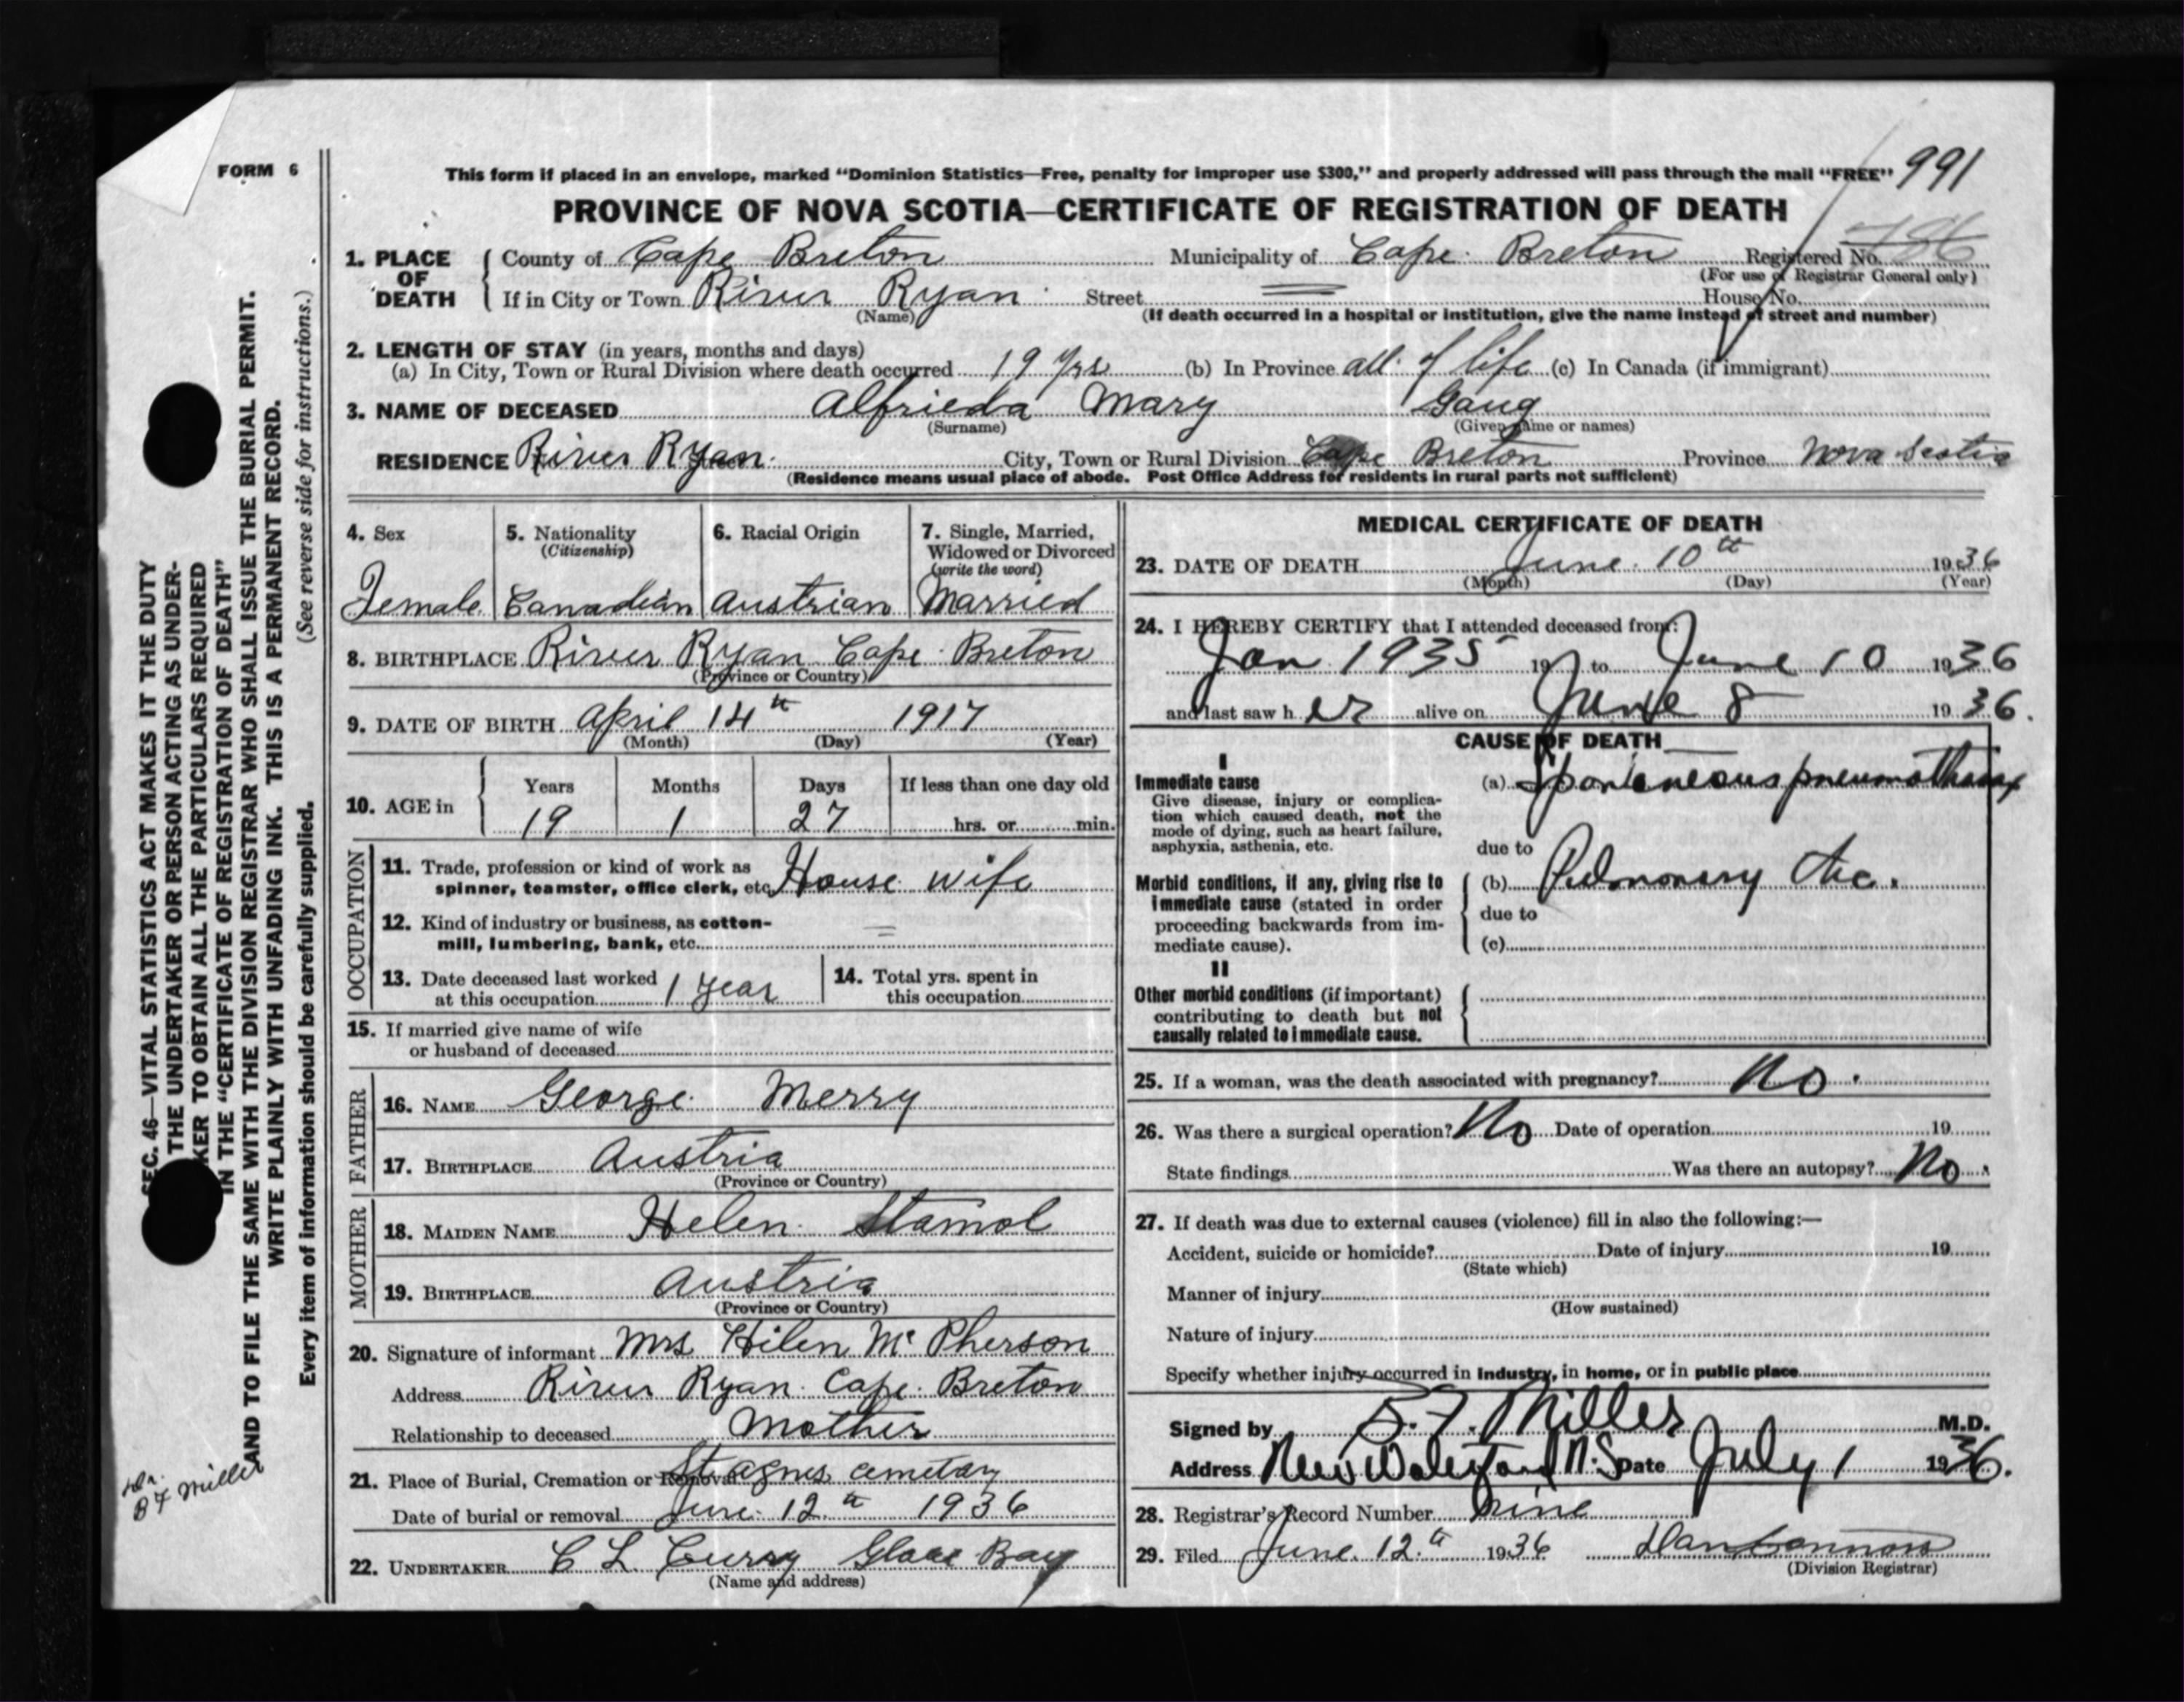 FORM 6
This form if placed in an envelope, marked “Dominion Statistics—Free, penalty for improper use $300,” and properly addressed will pass through the mail “FREE” 991
PROVINCE OF NOVA SCOTIA—CERTIFICATE OF REGISTRATION OF DEATH
1. PLACE OF DEATH County of Cape Breton Municipality of Cape Breton Registered No. 786
(For use of Registrar General only)
If in City or Town River Ryan Street House No.
(Name) (If death occurred in a hospital or institution, give the name instead of street and number)
2. LENGTH OF STAY (in years, months and days)
(a) In City, Town or Rural Division where death occurred 19 yrs (b) In Province all of life (c) In Canada (if immigrant)
3. NAME OF DECEASED Alfrieda Mary Gaug
(Surname) (Given name or names)
RESIDENCE River Ryan City, Town or Rural Division Cape Breton Province Nova Scotia
(Residence means usual place of abode. Post Office Address for residents in rural parts not sufficient)
4. Sex Female
5. Nationality (Citizenship) Canadian
6. Racial Origin Austrian
7. Single, Married, Widowed or Divorced (write the word) Married
8. BIRTHPLACE River Ryan Cape Breton
(Province or Country)
9. DATE OF BIRTH April 14th 1917
(Month) (Day) (Year)
10. AGE in Years Months Days If less than one day old
19 1 27 hrs. or min.
OCCUPATION
11. Trade, profession or kind of work as
spinner, teamster, office clerk, etc. House wife
12. Kind of industry or business, as cotton-
mill, lumbering, bank, etc. =
13. Date deceased last worked
at this occupation 1 year
14. Total yrs. spent in
this occupation
15. If married give name of wife
or husband of deceased
FATHER
16. NAME George Merry
17. BIRTHPLACE Austria
(Province or Country)
MOTHER
18. MAIDEN NAME Helen Stamol
19. BIRTHPLACE Austria
(Province or Country)
20. Signature of informant Mrs Hilen Mc Pherson
Address River Ryan Cape Breton
Relationship to deceased Mother
21. Place of Burial, Cremation or Removal St agnes cemetary
Date of burial or removal June 12th 1936
22. UNDERTAKER C L Curry Glace Bay
(Name and address)
MEDICAL CERTIFICATE OF DEATH
23. DATE OF DEATH June 10th 1936
(Month) (Day) (Year)
24. I HEREBY CERTIFY that I attended deceased from:
Jan 1935 19 to June 10 1936
and last saw her alive on June 8 1936.
CAUSE OF DEATH
I
Immediate cause (a) Spontaneous pneumothorax
Give disease, injury or complica-
tion which caused death, not the
mode of dying, such as heart failure,
asphyxia, asthenia, etc.
due to
Morbid conditions, if any, giving rise to
immediate cause (stated in order
proceeding backwards from im-
mediate cause).
(b) Pulmonary tbc.
due to
(c)
II
Other morbid conditions (if important)
contributing to death but not
causally related to immediate cause.
25. If a woman, was the death associated with pregnancy? No.
26. Was there a surgical operation? No Date of operation 19
State findings Was there an autopsy? No.
27. If death was due to external causes (violence) fill in also the following:—
Accident, suicide or homicide? Date of injury 19
(State which)
Manner of injury
(How sustained)
Nature of injury
Specify whether injury occurred in Industry, in home, or in public place
Signed by B. F. Miller M.D.
Address New Waterford N.S. Date July 1 1936.
28. Registrar's Record Number nine
29. Filed June 12th 1936 Dan Connors
(Division Registrar)
SEC. 46—VITAL STATISTICS ACT MAKES IT THE DUTY
THE UNDERTAKER OR PERSON ACTING AS UNDER-
KER TO OBTAIN ALL THE PARTICULARS REQUIRED
IN THE “CERTIFICATE OF REGISTRATION OF DEATH”
AND TO FILE THE SAME WITH THE DIVISION REGISTRAR WHO SHALL ISSUE THE BURIAL PERMIT.
WRITE PLAINLY WITH UNFADING INK. THIS IS A PERMANENT RECORD.
Every item of information should be carefully supplied. (See reverse side for instructions.)
Dr.
B F Miller